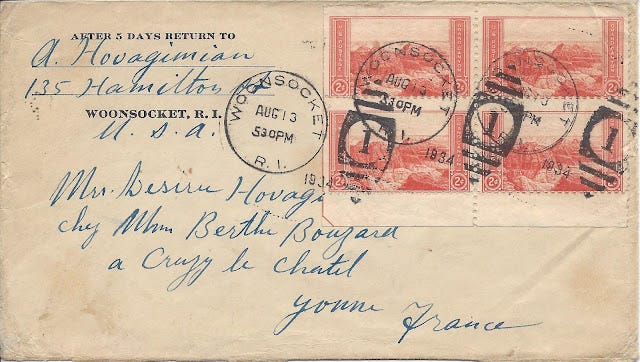 AFTER 5 DAYS RETURN TO
A. Hovagimian
135 Hamilton
WOONSOCKET, R. I.
U. S. A.
WOONSOCKET
AUG 13
5 30 PM
R. I.
1934
WOONSOCKET
AUG 13
5 30 PM
R. I.
1934
PM
1934
1
1
1
2¢
2¢
2¢
2¢
Mrs. Desiree Hovagi
chez Mme Berthe Bouzard
a Cruzy le Chatel
Yonne France